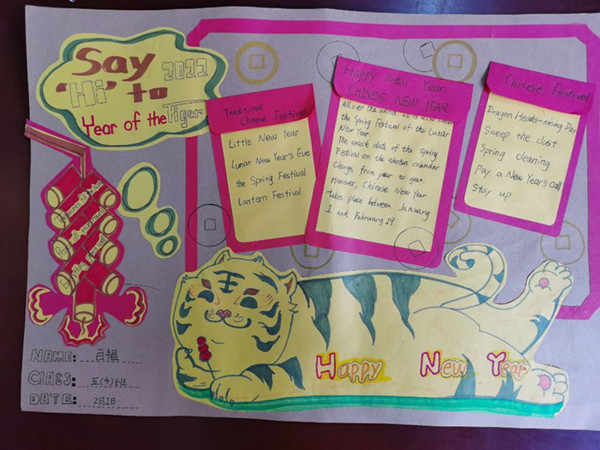 Say
'Hi' to 2022
Year of the Tiger
Traditional
Chinese Festival
Little New Year
Lunar New Year's Eve
the Spring Festival
Lantern Festival
Happy New Year
CHINES NEW YEAR
all over the world. It is also
the Spring Festival of the Lunar
New Year
The exact date of the Spring
Festival on the western calendar
Change from year to year
However, Chinese New Year
take place between January
Chinese Festival
Dragon Heads-
Sweep the dust
Spring cleaning
Pay a New Year's Call
Stay up
Happy New Year
NAME:
CLASS: 三(4)班
DATE: 2月1日